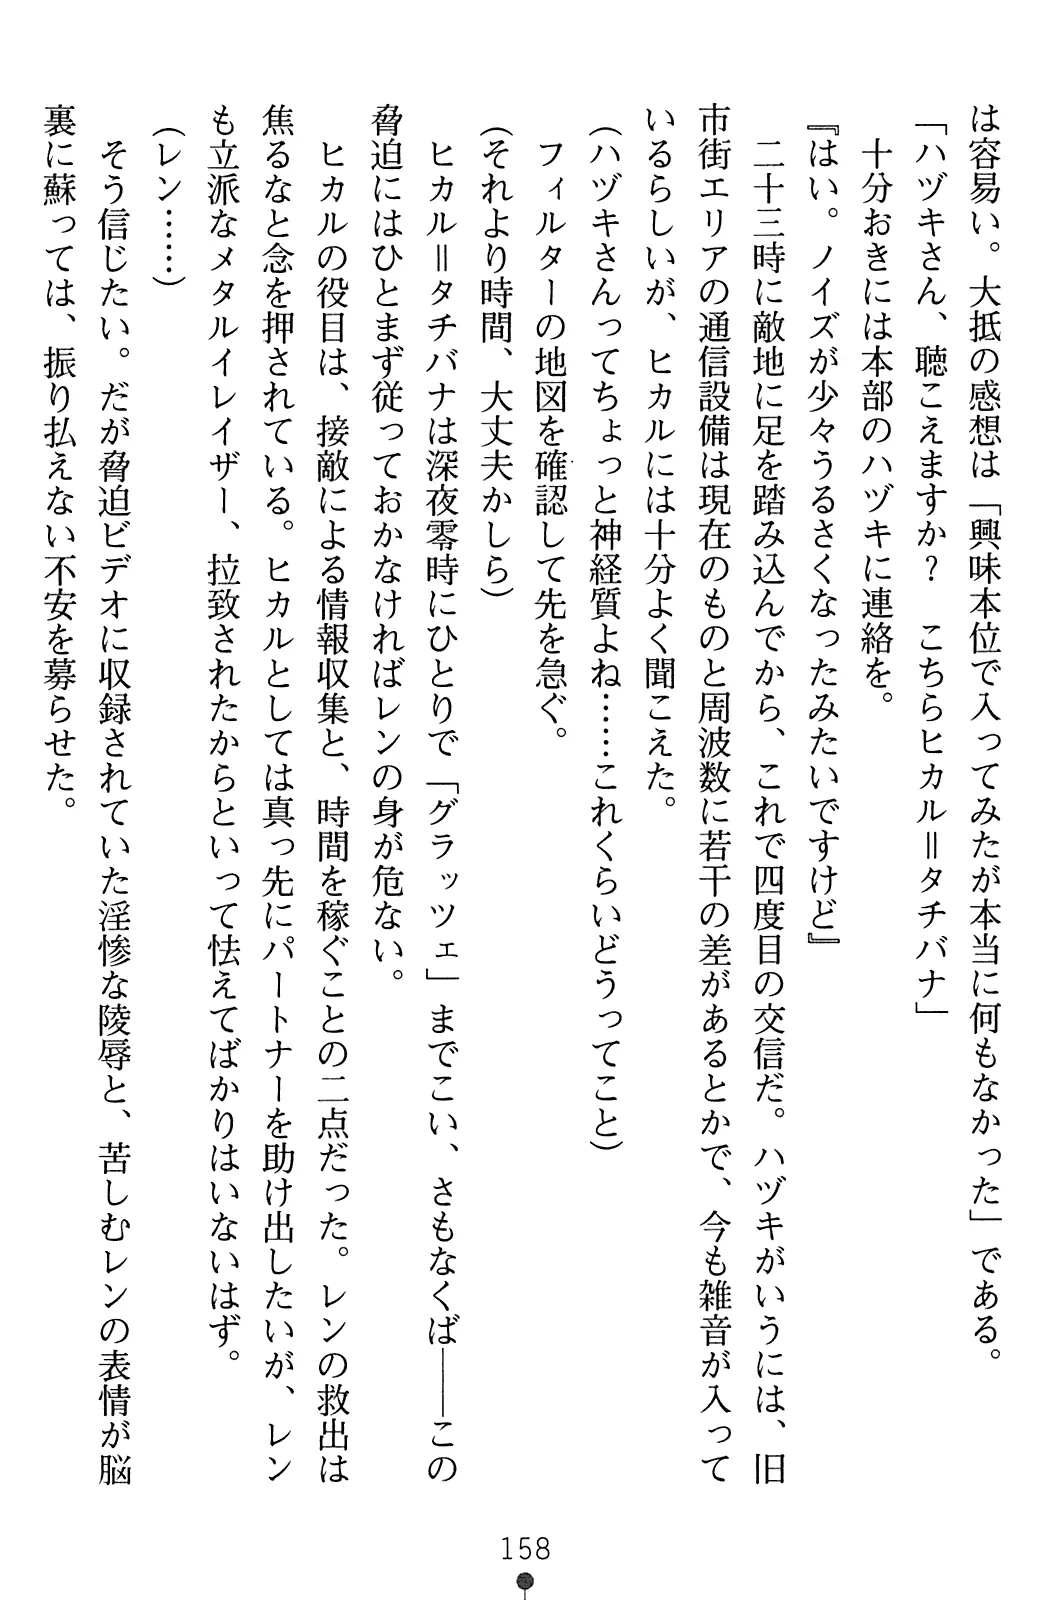 は容易い。大抵の感想は「興味本位で入ってみたが本当に何もなかった」である。
「ハヅキさん、聴こえますか?　こちらヒカル＝タチバナ」
　十分おきには本部のハヅキに連絡を。
『はい。ノイズが少々うるさくなったみたいですけど』
　二十三時に敵地に足を踏み込んでから、これで四度目の交信だ。ハヅキがいうには、旧
市街エリアの通信設備は現在のものと周波数に若干の差があるとかで、今も雑音が入って
いるらしいが、ヒカルには十分よく聞こえた。
（ハヅキさんってちょっと神経質よね……これくらいどうってこと）
　フィルターの地図を確認して先を急ぐ。
（それより時間、大丈夫かしら）
　ヒカル＝タチバナは深夜零時にひとりで「グラッツェ」までこい、さもなくば――この
脅迫にはひとまず従っておかなければレンの身が危ない。
　ヒカルの役目は、接敵による情報収集と、時間を稼ぐことの二点だった。レンの救出は
焦るなと念を押されている。ヒカルとしては真っ先にパートナーを助け出したいが、レン
も立派なメタルイレイザー、拉致されたからといって怯えてばかりはいないはず。
（レン……）
　そう信じたい。だが脅迫ビデオに収録されていた淫惨な陵辱と、苦しむレンの表情が脳
裏に蘇っては、振り払えない不安を募らせた。
158